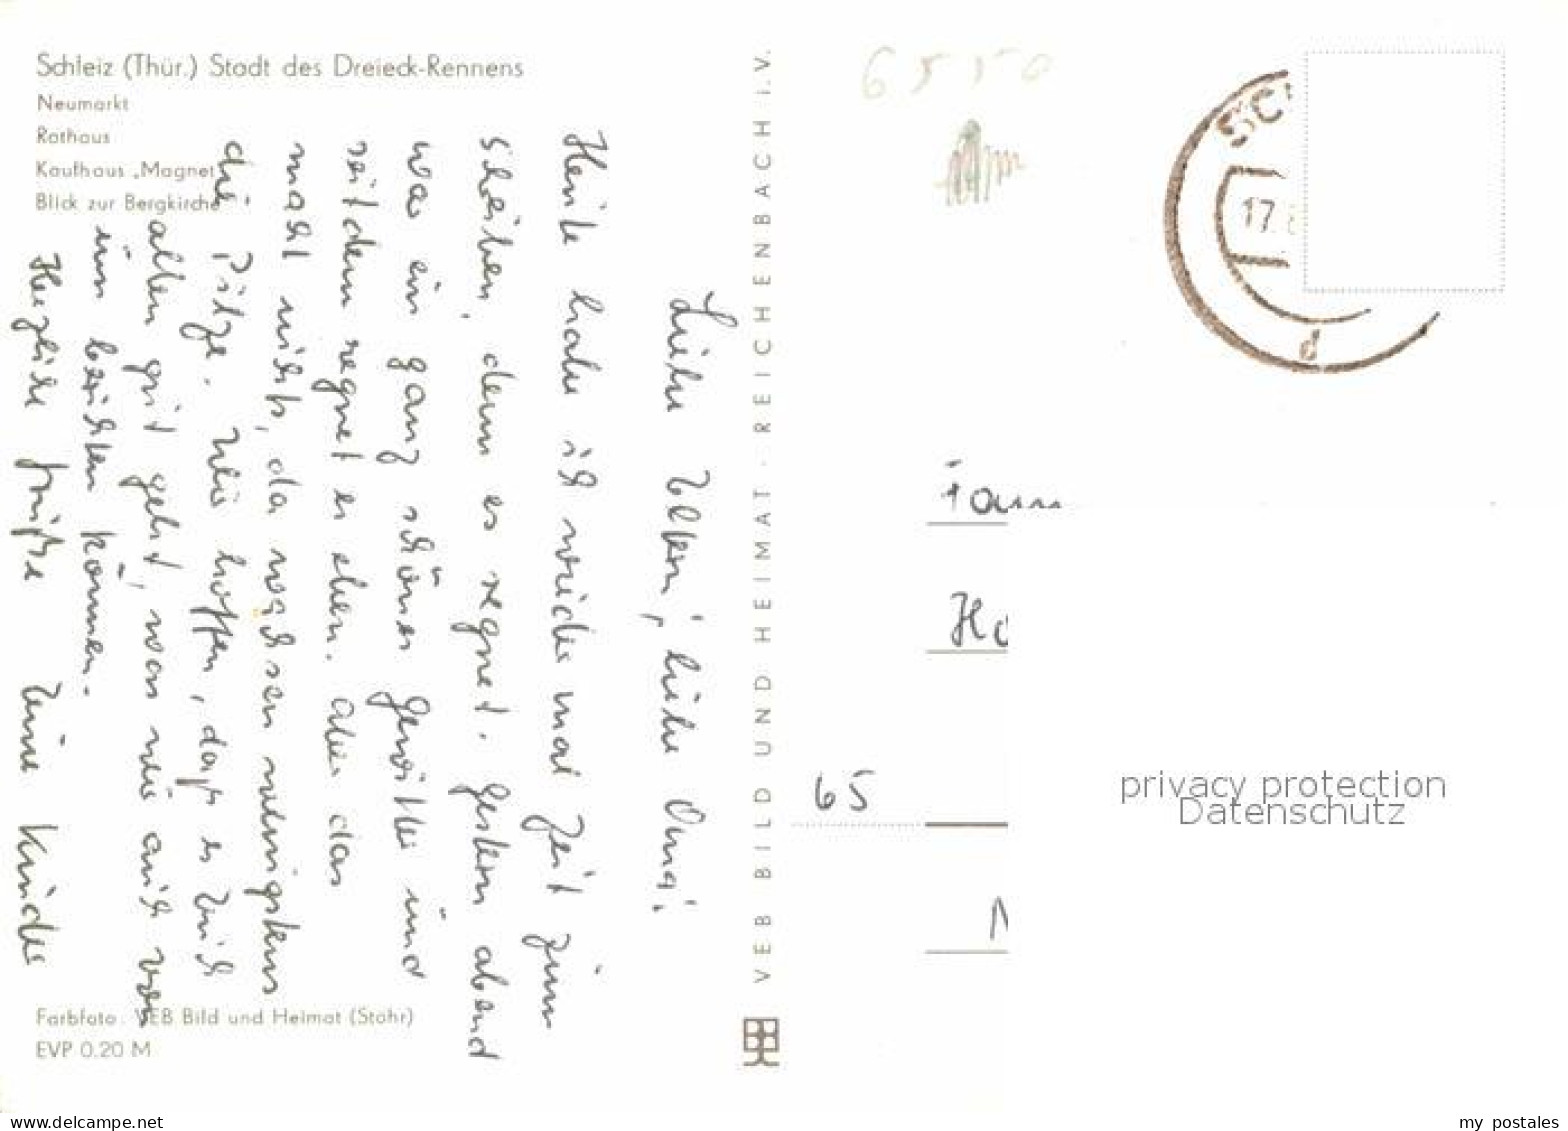 Schleiz (Thür.) Stadt des Dreieck-Rennens
Neumarkt
Rathaus
Kaufhaus „Magnet"
Blick zur Bergkirche
Liebe Eltern, liebe Oma!
Heute habe ich wieder mal Zeit zum
schreiben, denn es regnet. Gestern abend
war ein ganz schönes Gewitter und
seitdem regnet es eben. Aber das
macht nichts, da wachsen wenigstens
die Pilze. Wir hoffen, daß es Euch
allen gut geht, was wir auch von
uns berichten können.
Herzliche Grüße Eure Kinder
Farbfoto: VEB Bild und Heimat (Stöhr)
EVP 0.20 M
VEB BILD UND HEIMAT · REICHENBACH i. V.
6550
SC
17.
d
Fam
Ho
65
privacy protection
Datenschutz
www.delcampe.net
my_postales